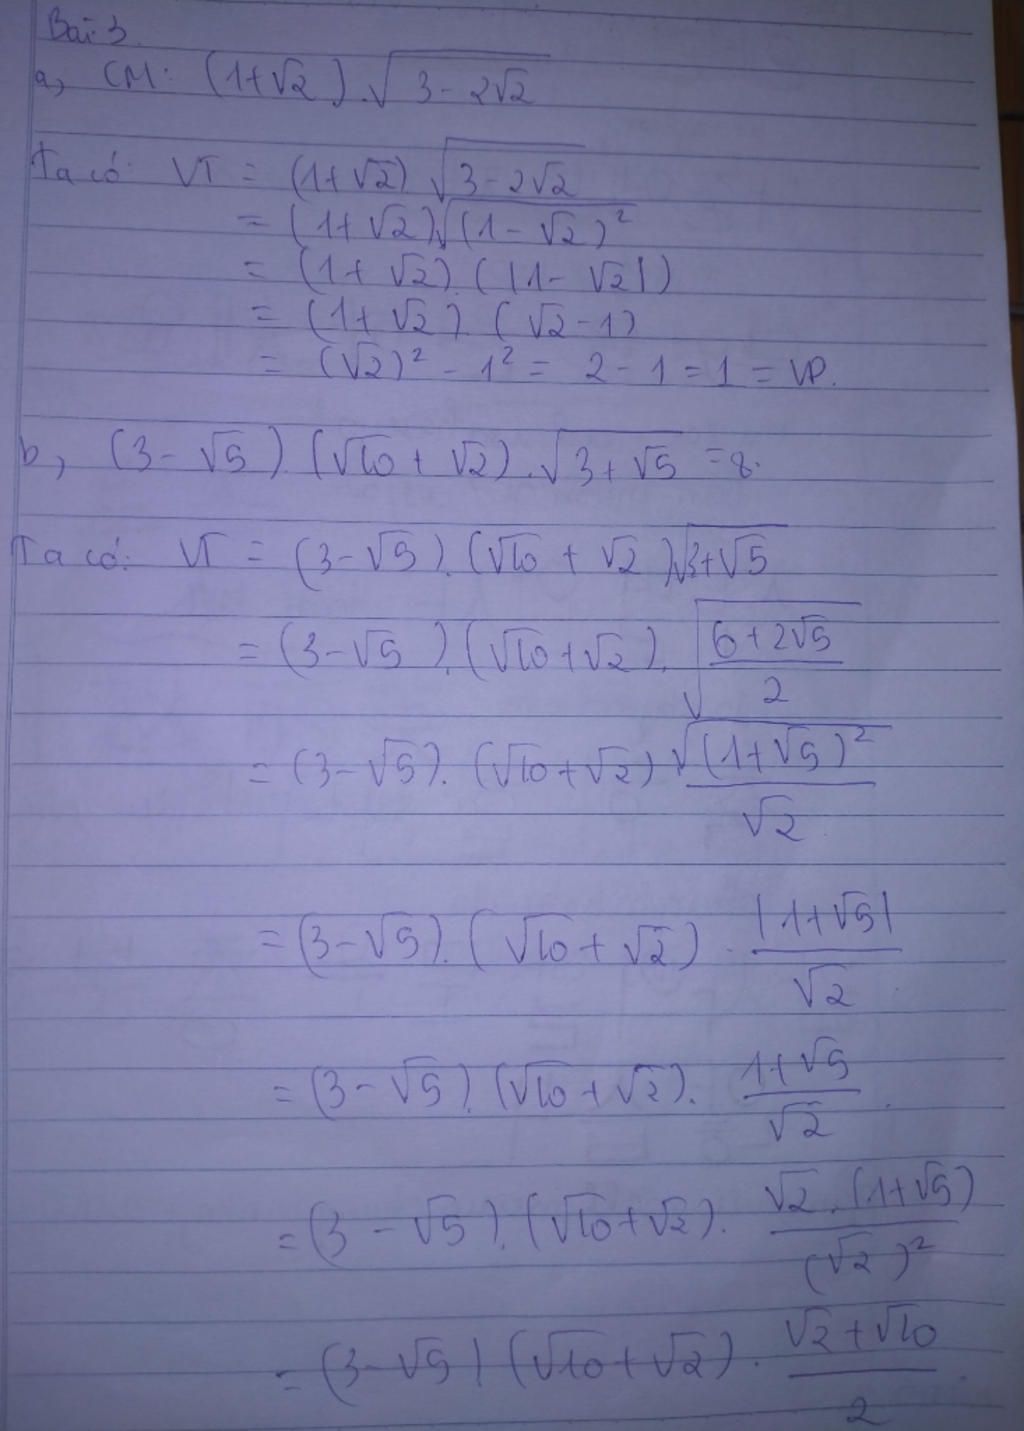 Bài 3.
a, CM: (1+√2).√(3-2√2)
Ta có: VT = (1+√2) √(3-2√2)
= (1+√2)√((1-√2)²)
= (1+√2).(|1-√2|)
= (1+√2).(√2-1)
= (√2)² - 1² = 2 - 1 = 1 = VP.
b, (3-√5).(√10+√2).√(3+√5) = 8.
Ta có: VT = (3-√5).(√10+√2)√(3+√5)
= (3-√5).(√10+√2).√((6+2√5)/2)
= (3-√5).(√10+√2) √((1+√5)²)/√2
= (3-√5).(√10+√2).|1+√5|/√2
= (3-√5).(√10+√2).(1+√5)/√2
= (3-√5).(√10+√2).√2.(1+√5)/(√2)²
= (3-√5)(√10+√2).(√2+√10)/2